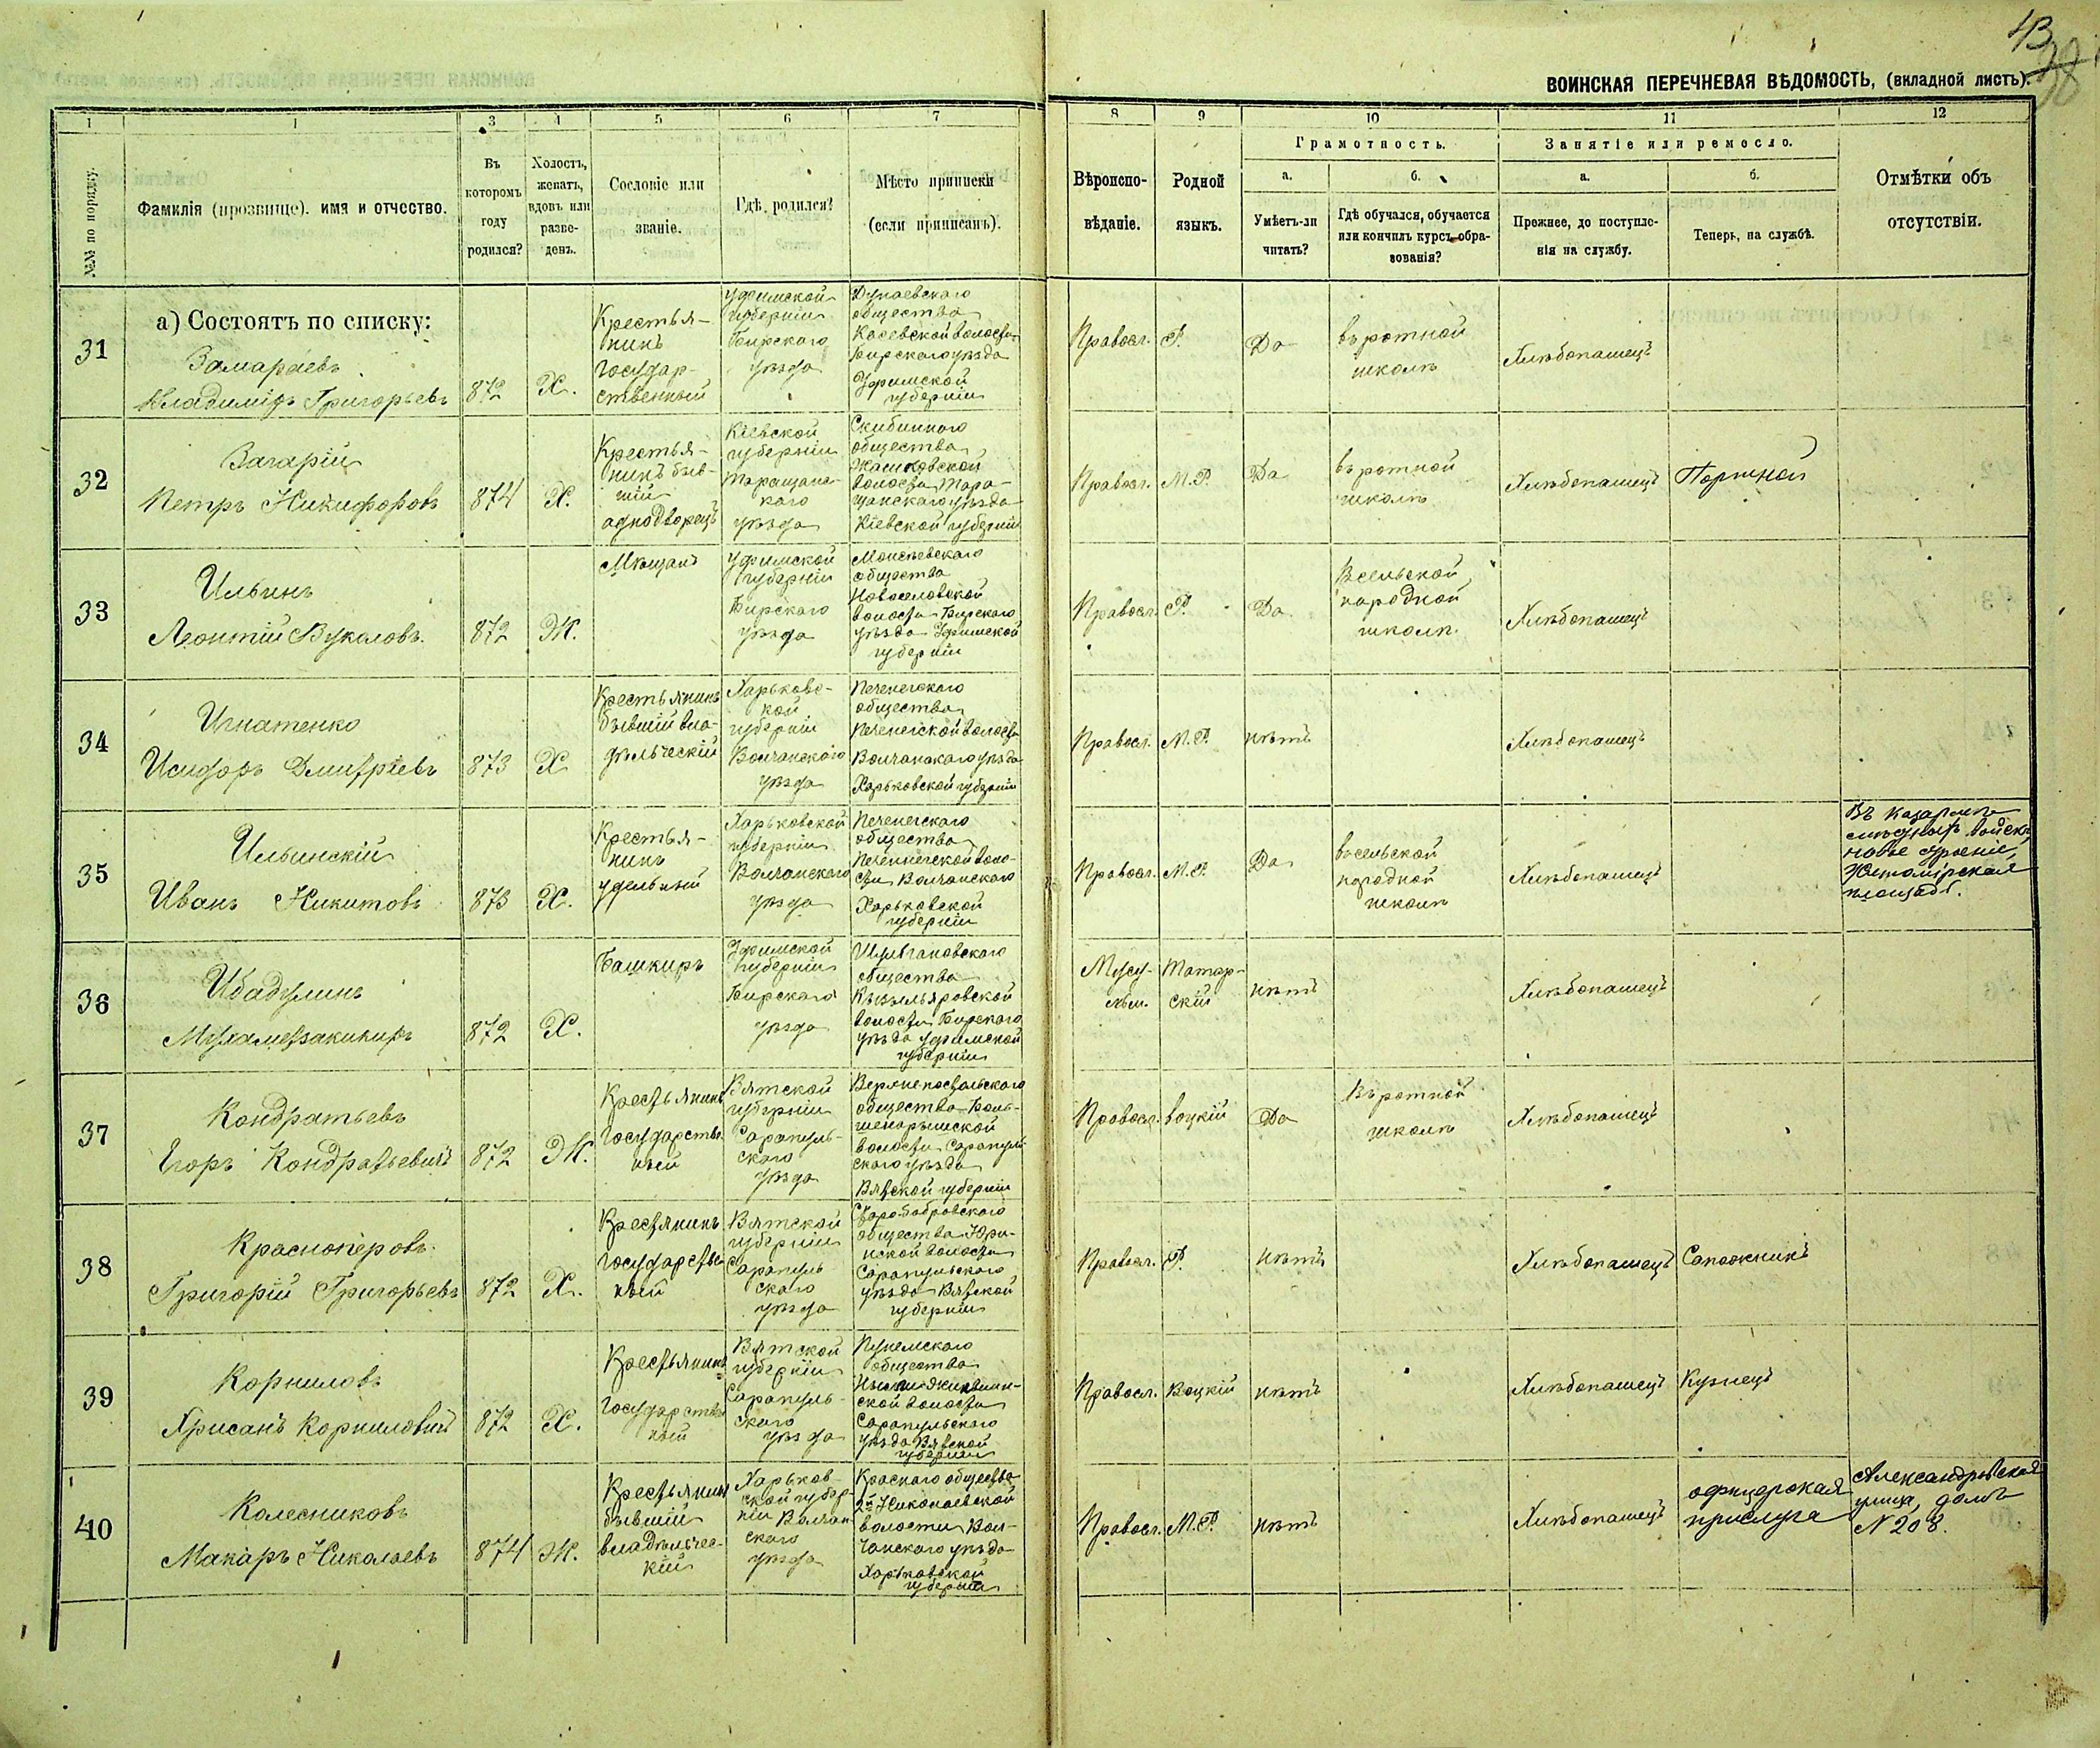 43
38
ВОИНСКАЯ ПЕРЕЧНЕВАЯ ВѢДОМОСТЬ, (вкладной листъ).
1 1 3 4 5 6 7 8 9 10 11 12
№№ по порядку.
Фамилія (прозвище). имя и отчество.
Въ которомъ году родился?
Холостъ, женатъ, вдовъ или разведенъ.
Сословіе или званіе.
Гдѣ родился?
Мѣсто приписки (если приписанъ).
Вѣроисповѣданіе.
Родной языкъ.
Грамотность.
а. Умѣетъ-ли читать?
б. Гдѣ обучался, обучается или кончилъ курсъ образованія?
Занятіе или ремесло.
а. Прежнее, до поступленія на службу.
б. Теперь, на службѣ.
Отмѣтки объ отсутствіи.
а) Состоятъ по списку:
31
Замараевъ
Владиміръ Григорьевъ
872
Х.
Крестья-
нинъ
Государ-
ственный
Уфимской
губерніи
Бирского
уѣзда
общества
Касевской волости
Бирскаго уѣзда
Уфимской
губерніи
Правосл.
Р.
Да
въ ротной
школѣ
Хлѣбопашецъ
32
Загарій
Петръ Никифоровъ
874
Х.
Крестья-
нинъ быв-
шій
однодворецъ
Кіевской
губерніи
Таращанс-
каго
уѣзда
Скибинного
общества
Жашковской
волости Тара-
щанскаго уѣзда
Кіевской губерніи
Правосл.
М.Р.
Да
въ ротной
школѣ
Хлѣбопашецъ
Портной
33
Ильинъ
Леонтій Вуколовъ.
872
Ж.
Мѣщанъ
Уфимской
губерніи
Бирскаго
уѣзда
Моисеевскаго
общества
Новоселовской
волости Бирскаго
уѣзда Уфимской
губерніи
Правосл.
Р.
Да
Всельской
народной
школѣ.
Хлѣбопашецъ
34
Игнатенко
Исидоръ Дмитріевъ
873
Х
Крестьянинъ
бывшій вла-
дѣльческій
Харьковс-
кой
губерніи
Волчанскаго
уѣзда
Печенегского
общества
Печенегской волости
Волчанскаго уѣзда
Харьковской губерніи
Правосл.
М.Р.
нѣтъ
Хлѣбопашецъ
35
Ильинскій
Иванъ Никитовъ
873
Х.
Крестья-
нинъ
удельный
Харьковской
губерніи
Волчанскаго
уѣзда
Печенегского
общества
Печенегской воло-
сти Волчанскаго
Харьковской
губерніи
Правосл.
М.Р.
Да
всельской
народной
школѣ
Хлѣбопашецъ
Въ казармѣ
войскъ
новое строеніе,
Житомірская
площадь.
36
Ибадулинъ
872
Х.
Башкиръ
Уфимской
губерніи
Бирскаго
уѣзда
Шульгановского
общества
Кызылъяровской
волости Бирскаго
уѣзда Уфимской
губерніи
Мусу-
льм.
Татар-
скій
нѣтъ
Хлѣбопашецъ
37
Кондратьевъ
Егоръ Кондратьевичъ
872
Ж.
Крестьянинъ
Государствен-
ный
Вятской
губерніи
Сарапуль-
ского
уѣзда
общества Боль-
шенорьинской
волости Сарапуль-
скаго уѣзда
Вятской губерніи
Правосл.
воцкій
Да
Въ ротной
школѣ
Хлѣбопашецъ
38
Красноперовъ.
Григорій Григорьевъ
872
Х.
Крестьянинъ
Государствен
ный
Вятской
губерніи
Сарапуль
ского
уѣзда
Старо-бобровского
общества Юри-
нской волости
Сарапульскаго
уѣзда Вятской
губерніи
Правосл.
Р.
нѣтъ
Хлѣбопашецъ
Сапожникъ
39
Корниловъ
Хрисанъ Корниловичъ
872
Х.
Крестьянинъ
Государствен
ный
Вятской
губерніи
Сарапуль-
скаго
уѣзда
общества
ской волости
Сарапульскаго
уѣзда Вятской
губерніи
Правосл.
Воцкій
нѣтъ
Хлѣбопашецъ
Кузнецъ
40
Колесниковъ
Макаръ Николаевъ
874
Ж.
Крестьянинъ
бывшій
владѣльчес-
кій
Харьков-
ской губер-
ніи Волчан
скаго
уѣзда
Красного общества
2й Николаевской
волости Вол-
чанскаго уѣзда
Харьковской
губерніи
Правосл.
М.Р.
нѣтъ
Хлѣбопашецъ
офицерская
прислуга
Александровская
улица, домъ
№ 208.